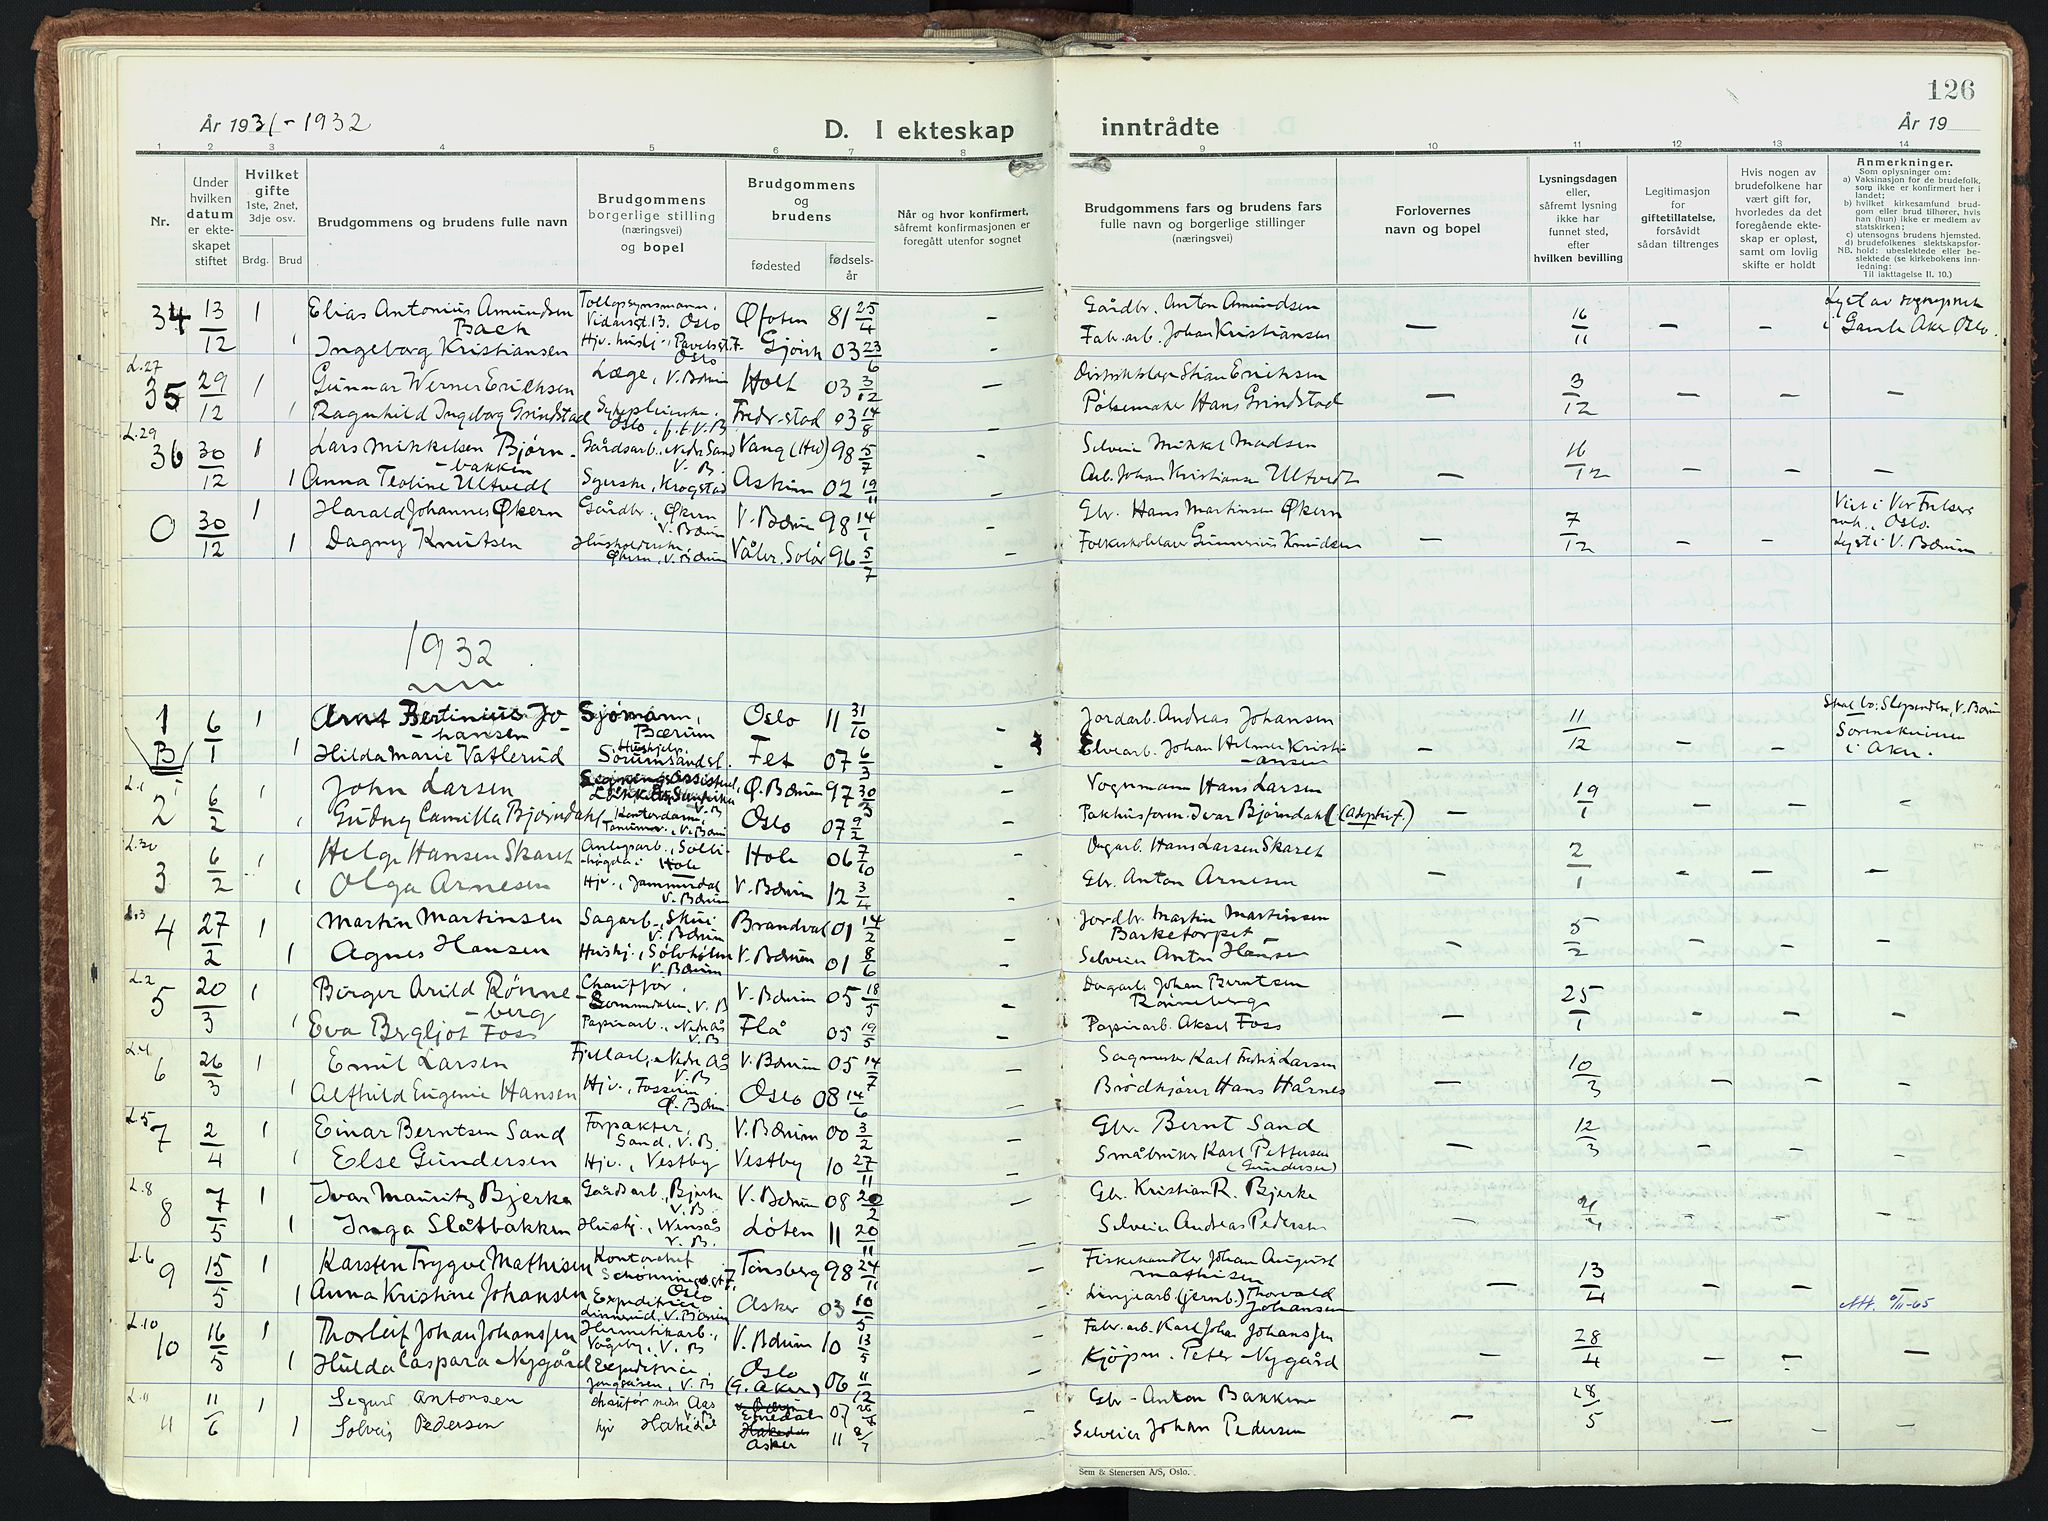 126
År 1931-1932
D. I ekteskap
inntrådte
År 19
1 2 3 4 5 6 7 8 9 10 11 12 13 14
Nr.
Under hvilken datum er ekteskapet stiftet
Hvilket gifte 1ste, 2net, 3dje osv.
Brdg. Brud
Brudgommens og brudens fulle navn
Brudgommens borgerlige stilling (næringsvei) og bopel
Brudgommens og brudens
fødested
fødselsår
Når og hvor konfirmert, såfremt konfirmasjonen er foregått utenfor sognet
Brudgommens fars og brudens fars fulle navn og borgerlige stillinger (næringsvei)
Forlovernes navn og bopel
Lysningsdagen eller, såfremt lysning ikke har funnet sted, efter hvilken bevilling
Legitimasjon for giftetillatelse, forsåvidt sådan tiltrenges
Hvis nogen av brudefolkene har vært gift før, hvorledes da det foregående ekteskap er opløst, samt om lovlig skifte er holdt
Anmerkninger.
Som oplysninger om:
a) Vaksinasjon for de brudefolk, som ikke er konfirmert her i landet;
b) hvilket kirkesamfund brudgom eller brud tilhører, hvis han (hun) ikke er medlem av statskirken;
c) utensogns brudens hjemsted.
d) brudefolkenes slektskapsforhold: ubeslektede eller beslektede (se kirkebokens innledning:
NB. Til iakttagelse II. 10.)
34 13/12 1 Elias Antonius Amundsen Bach Vidarsgt. 13. Oslo Øfoten 81 25/4 – Gårdbr. Anton Amundsen – 16/11 – –
1 Ingeborg Kristiansen Oslo Gjövik 03 23/6 – Fabr.arb. Johan Kristiansen i Gamle Aker Oslo.
L.27
35 29/12 1 Gunnar Werner Erichsen Læge, V. Bærum Holt 03 3/12 – Stian Erichsen – 3/12 – – –
1 Ragnhild Ingeborg Grindstad Oslo Fredr.stad 03 14/8 – Pölsemaker Hans Grindstad
L.29
36 30/12 1 Lars Mikkelsen Bjørnbakken Gårdsarb., Nedre Sand V.B. Vang (Hed) 98 5/7 – Selveier Mikkel Madsen – 16/12 – – –
1 Anna Teoline Ultvedt Syerske, Krogstad Askim 02 19/11 – Arb. Johan Kristiansen Ultvedt
0 30/12 1 Harald Johannes Økern Gårdbr., Økern V. Bærum V. Bærum 98 14/1 – Gbr. Hans Martinsen Økern – 7/12 – – Viet i Vor Frelsers kirke, Oslo.
1 Dagny Knutsen Husholderske, Økern, V. Bærum Våler, Solør 96 5/7 – Gunnerius Knudsen Lyst i V. Bærum
1932
1 B 6/1 1 Arnt Bertinius Johansen Sjømann, Bærum Oslo 11 31/10 – Jordarb. Andreas Johansen – 11/12 – – Skal bo: Slependen, V. Bærum
1 Hilda Marie Vatlerud Hushjelp. Sörumsandst. Fet 07 6/3 – Elvearb. Johan Helmer Kristiansen Sorenskriveren i Aker.
L.1
2 6/2 1 John Larsen Ø. Bærum 97 30/3 Vognmann Hans Larsen – 19/1 – – –
1 Gudny Camilla Bjørndahl Kontordame, Tanumv., V. Bærum Oslo 07 9/2 Pakhusform. Ivar Bjørndahl (Adoptivf.)
L.30
3 6/2 1 Helge Hansen Skaret Anleggsarb., Sollihøgda i Hole Hole 06 7/10 Dagarb. Hans Larsen Skaret – 2/1 – – –
1 Olga Arnesen Hjv., Jammerdal V. Bærum V. Bærum 12 3/4 – Gbr. Anton Arnesen
L.3
4 27/2 1 Martin Martinsen Sagarb., Skui V. Bærum Brandval 01 14/2 – Jordbr. Martin Martinsen Barketorpet – 5/2 – – –
1 Agnes Hansen Hushj., Sølvhølen V. Bærum V. Bærum 01 8/6 – Selveier Anton Hansen
L.2
5 20/3 1 Birger Arild Rønneberg Chauffør, V.B. V. Bærum 05 18/5 – Dagarb. Johan Berntsen Rønneberg – 25/1 – – –
1 Eva Bergljot Foss Papirarb., Nedre Ås V.B. Flå 05 19/5 – Papirarb. Aksel Foss
L.4
6 26/3 1 Emil Larsen Nedre Ås V.B. V. Bærum 05 14/7 – Sagmester Karl Fredrik Larsen – 10/3 – – –
1 Alfhild Eugenie Hansen Hjv., Fossum Ø. Bærum Oslo 08 14/6 – Brödkjører Hans Hårnes
L.5
7 2/4 1 Einar Berntsen Sand Forpakter, Sand, V.B. V. Bærum 00 3/2 – Gbr. Bernt Sand – 12/3 – – –
1 Else Gundersen Hjv., Vestby Vestby 10 27/11 – Småbruker Karl Pettersen (Gundersen)
L.8
8 7/5 1 Ivar Mauritz Bjerke Gårdsarb., Bjerke V.B. V. Bærum 08 20/2 – Gbr. Kristian R. Bjerke – – – –
1 Inga Slåtbakken Hushj., V.B. Löten 11 20/11 – Selveier Andreas Pedersen
L.6
9 15/5 1 Karsten Trygve Mathisen Kontorchef Schönnings gt. 7, Oslo Tönsberg 98 24/11 – Fiskehandler Johan August Mathisen – 13/4 – – –
1 Anna Kristine Johansen Expeditrice V. Bærum Asker 03 10/5 – Linjearb. (jernb.) Thorvald Johansen
L.10
10 16/5 1 Thorleif Johan Johanssen Hermetikarb., V.B. V. Bærum 10 13/5 – Fabr.arb. Karl Johan Johanssen – 28/4 – – –
1 Hulda Caspara Nygård Expeditrice, Jongsåsen, V.B. Oslo (G. Aker) 06 11/12 – Kjøpm. Peter Nygård
L.11
11 11/6 1 Sigurd Antonsen chaufør nedre Aas V.B. 07 – Gbr. Anton Bakken – 28/5 – – –
1 Solveig Pedersen hjv Hakedal Asker 11 8/7 Selveier Johan Pedersen
Sem & Stenersen A/S, Oslo.